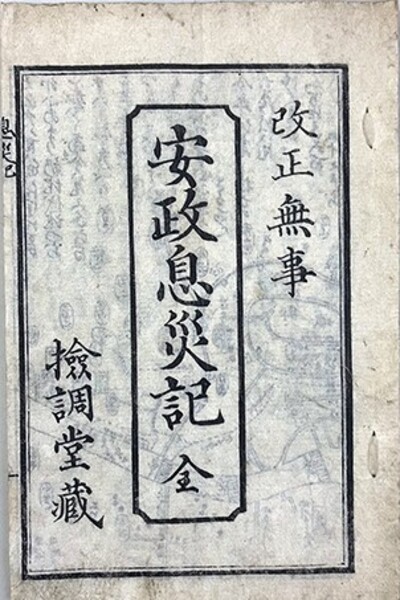 改正無事
安政息災記 全
撿調堂藏
息災記